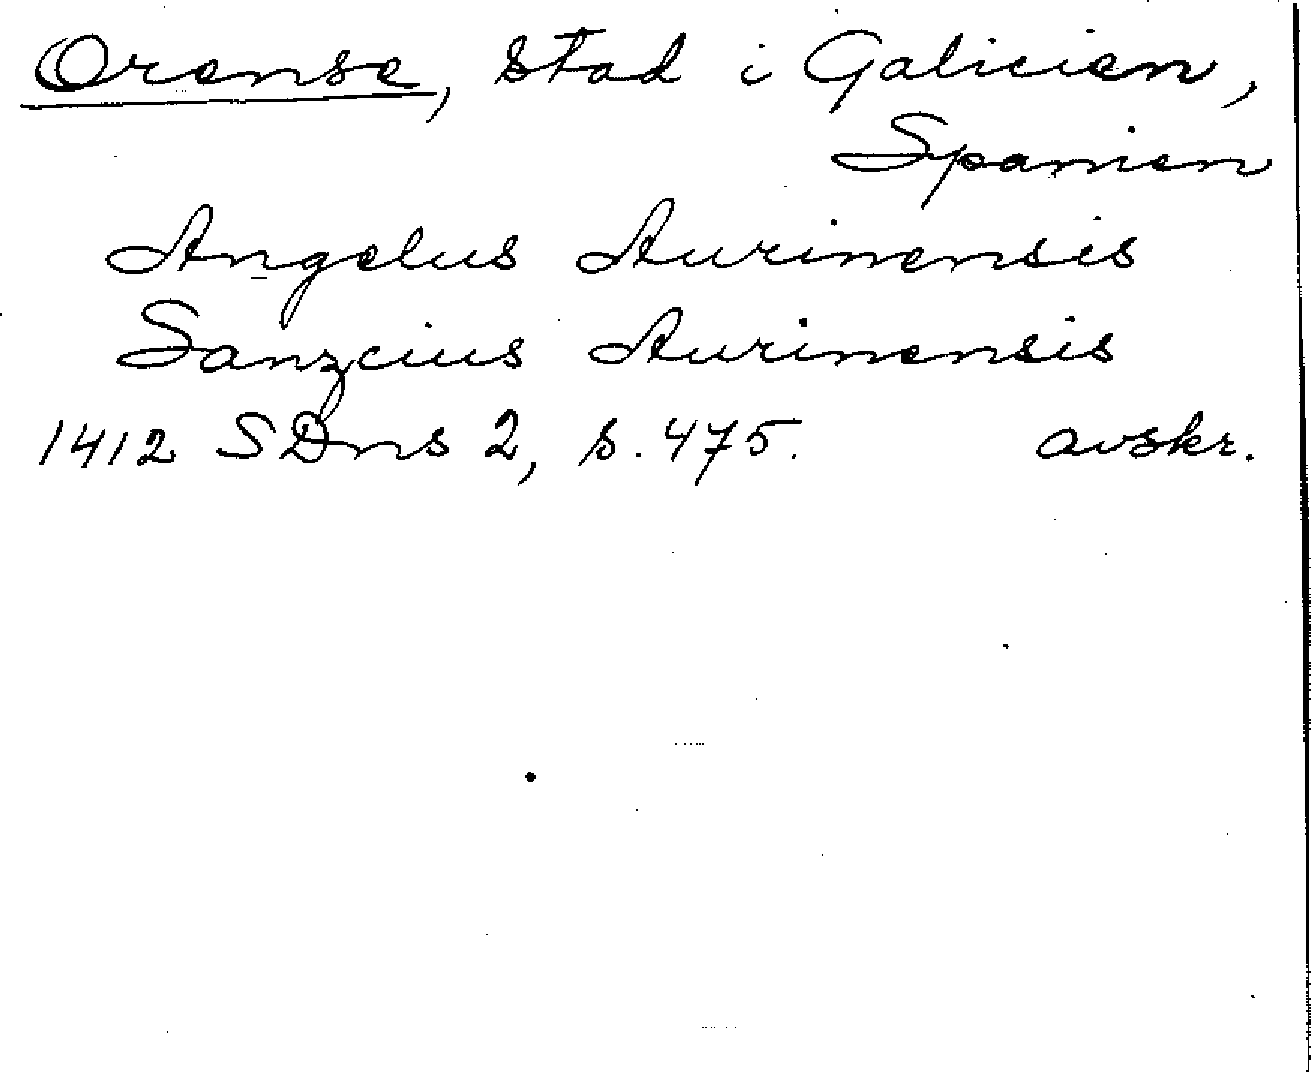 Orense, stad i Galicien,
Spanien
Angelus Aurinensis
Sanzcius Aurinensis
1412 SDns 2, s. 475. avskr.